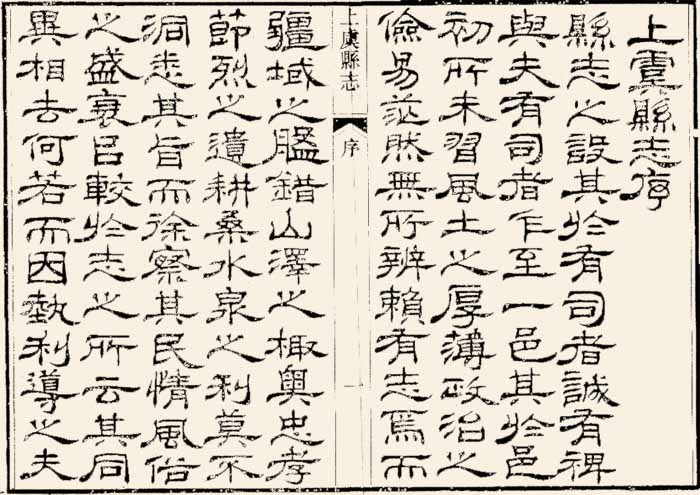 上虞縣志序
縣志之設其於有司者誠有裨
與夫有司者乍至一邑其於邑
初所未習風土之厚薄政治之
儉易茫然無所辨賴有志焉而
上虞縣志 序 一
疆域之錯山澤之棷奧忠孝
節烈之遺耕桑水泉之利莫不
洞悉其旨而徐察其民情風俗
之盛衰㠯較於志之所云其同
異相去何若而因埶利導之夫